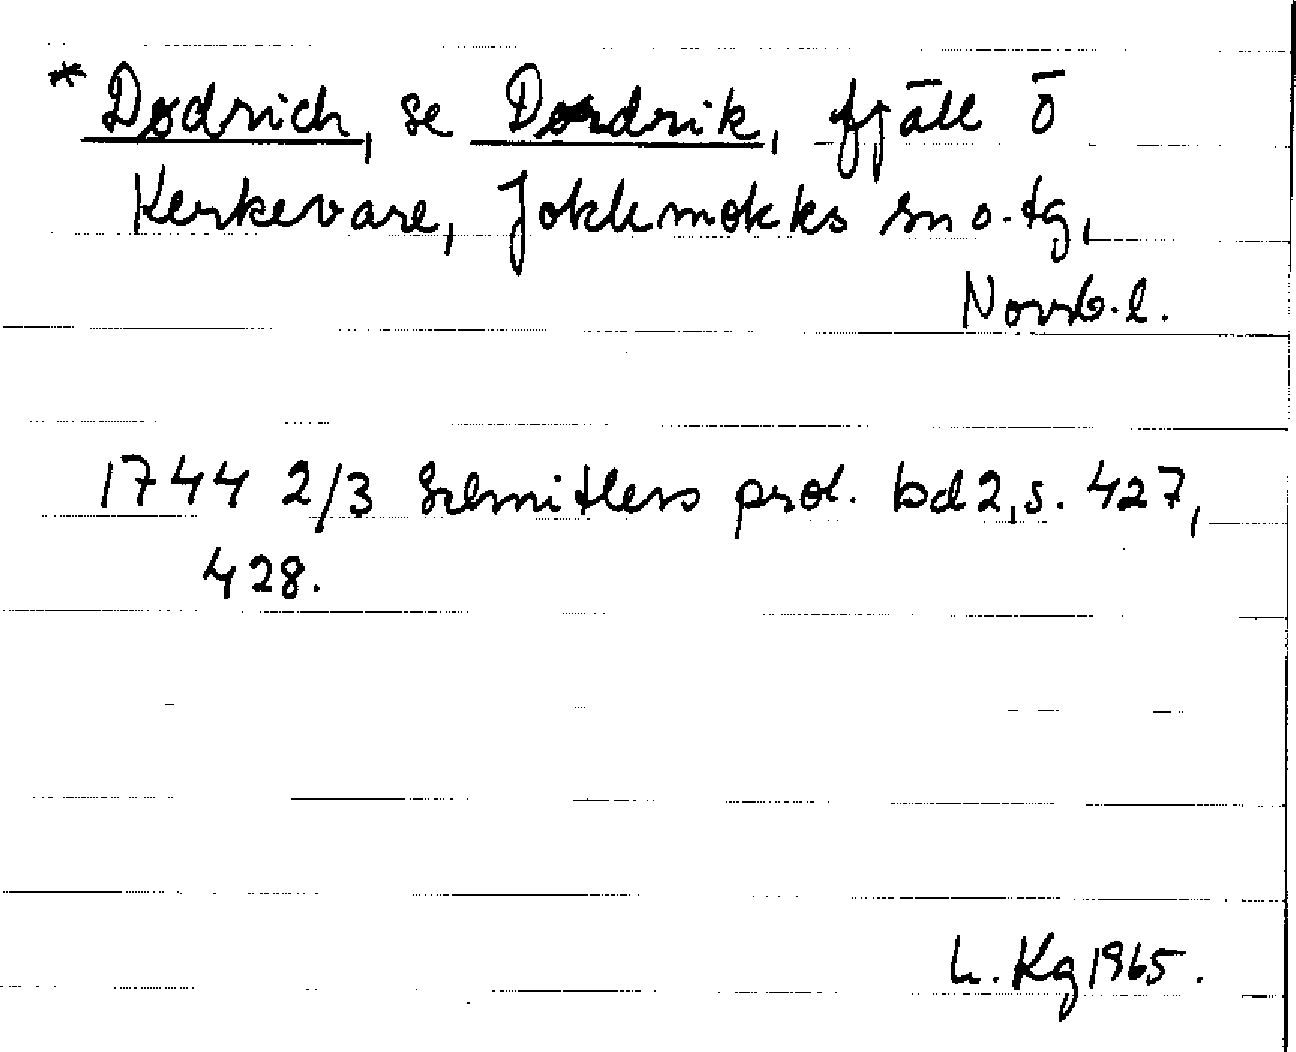 *Dødrich, se Dordrik, fjäll Ö
Kerkevare, Jokkmokks sn o. tg,
Norrb. l.
1744 2/3 Schnitlers prot. bd 2, s. 427,
428.
L. Kg 1965.